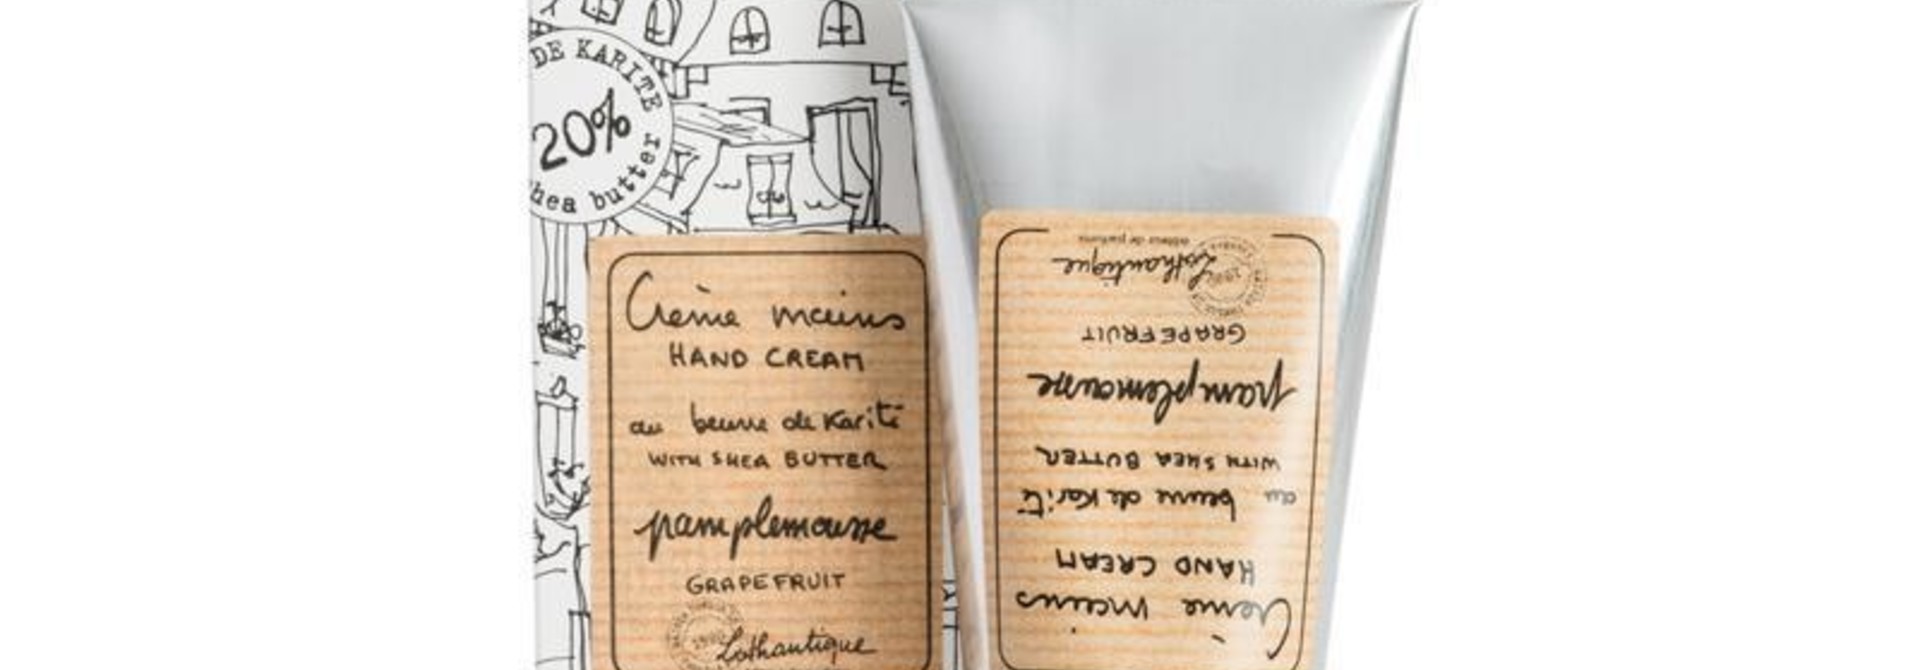 DE KARITE
20%
hea butter
Crème mains
HAND CREAM
au beurre de Karité
WITH SHEA BUTTER
pamplemousse
GRAPEFRUIT
Lothantique
Crème mains
HAND CREAM
au beurre de Karité
WITH SHEA BUTTER
pamplemousse
GRAPEFRUIT
Lothantique